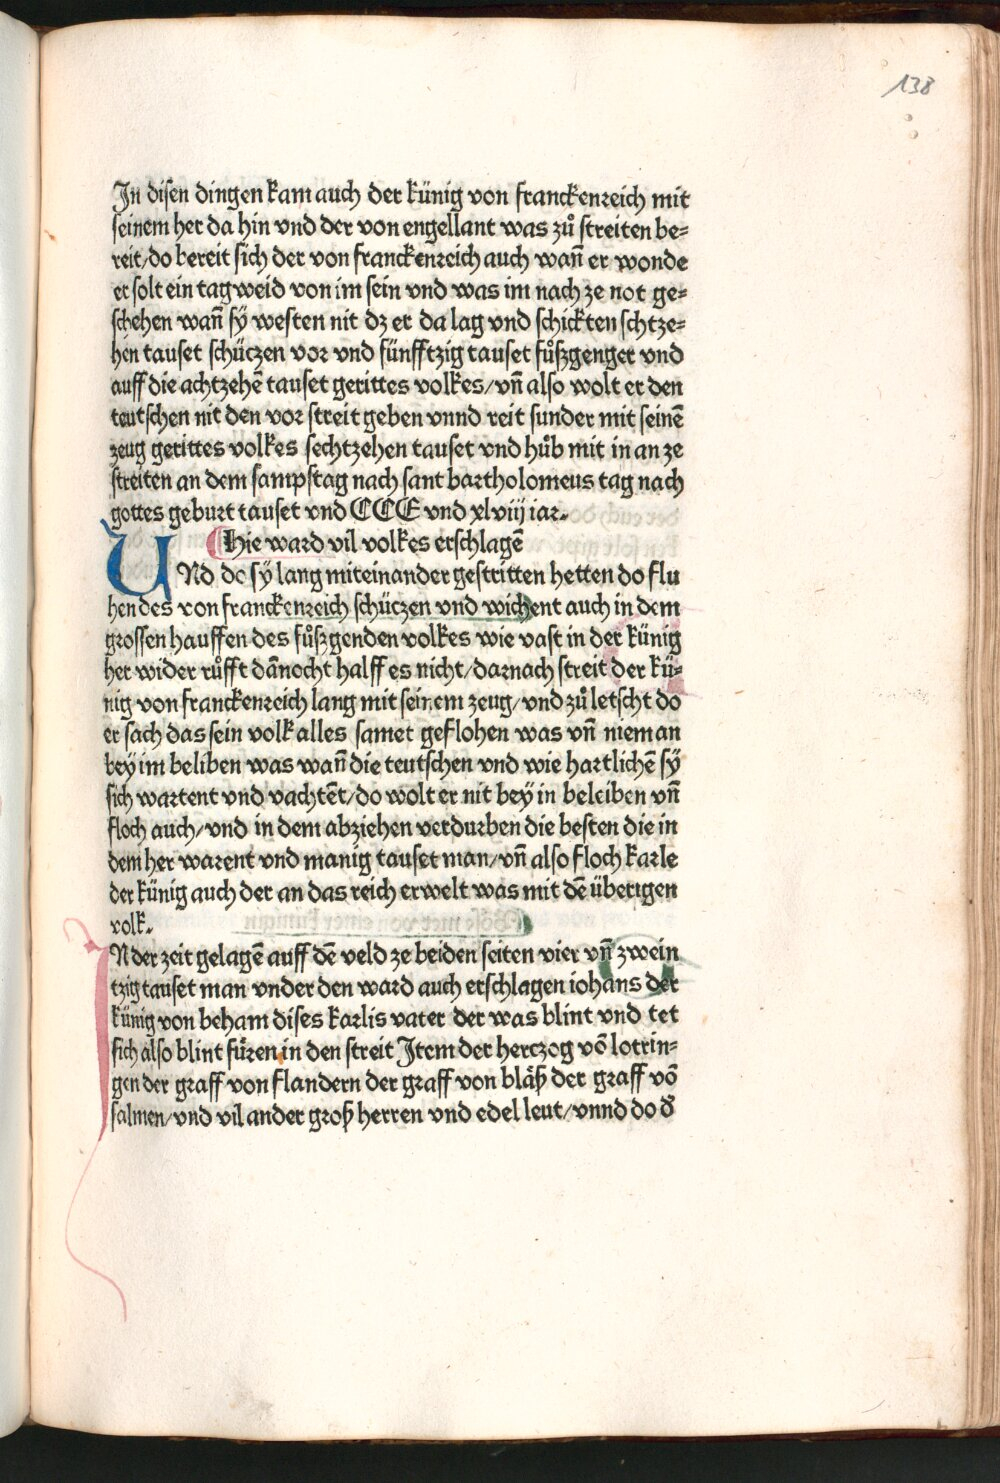 138
In disen dingen kam auch der künig von franckenreich mit
seinem her da hin vnd der von engellant was zů streiten be⸗
reit/do bereit sich der von franckenreich auch wañ er wonde
er solt ein tagweid von im sein vnd was im nach ze not ge⸗
schehen wañ sÿ westen nit dz er da lag vnd schickten schtze⸗
hen tauset schüczen vor vnd fünfftzig tauset fůszgenger vnd
auff die achtzehẽ tauset gerittes volkes/vñ also wolt er den
teutschen nit den vor streit geben vnnd reit sunder mit seinẽ
zeug gerittes volkes sechtzehen tauset vnd hůb mit in an ze
streiten an dem sampstag nach sant bartholomeus tag nach
gottes geburt tauset vnd CCC vnd xlviij iar.
Hie ward vil volkes erschlagẽ
UNd do sÿ lang miteinander gestritten hetten do flu
hen des von franckenreich schüczen vnd wichent auch in dem
grossen hauffen des fůszgenden volkes wie vast in der künig
her wider růfft dãnocht halff es nicht/darnach streit der kü⸗
nig von franckenreich lang mit seinem zeug/vnd zů letscht do
er sach das sein volk alles samet geflohen was vñ nieman
bey im beliben was wañ die teutschen vnd wie hartlichẽ sÿ
sich wartent vnd vachtẽt/do wolt er nit bey in beleiben vñ
floch auch/vnd in dem abziehen verdurben die besten die in
dem her warent vnd manig tauset man/vñ also floch karle
der künig auch der an das reich erwelt was mit dẽ überigen
volk.
IN der zeit gelagẽ auff dẽ veld ze beiden seiten vier vñ zwein
tzig tauset man vnder den ward auch erschlagen iohãs der
künig von beham dises karlis vater der was blint vnd tet
sich also blint füren in den streit Item der herczog võ lotrin⸗
gen der graff von flandern der graff von bläß der graff võ
salmen/vnd vil ander groß herren vnd edel leut/vnnd do đ